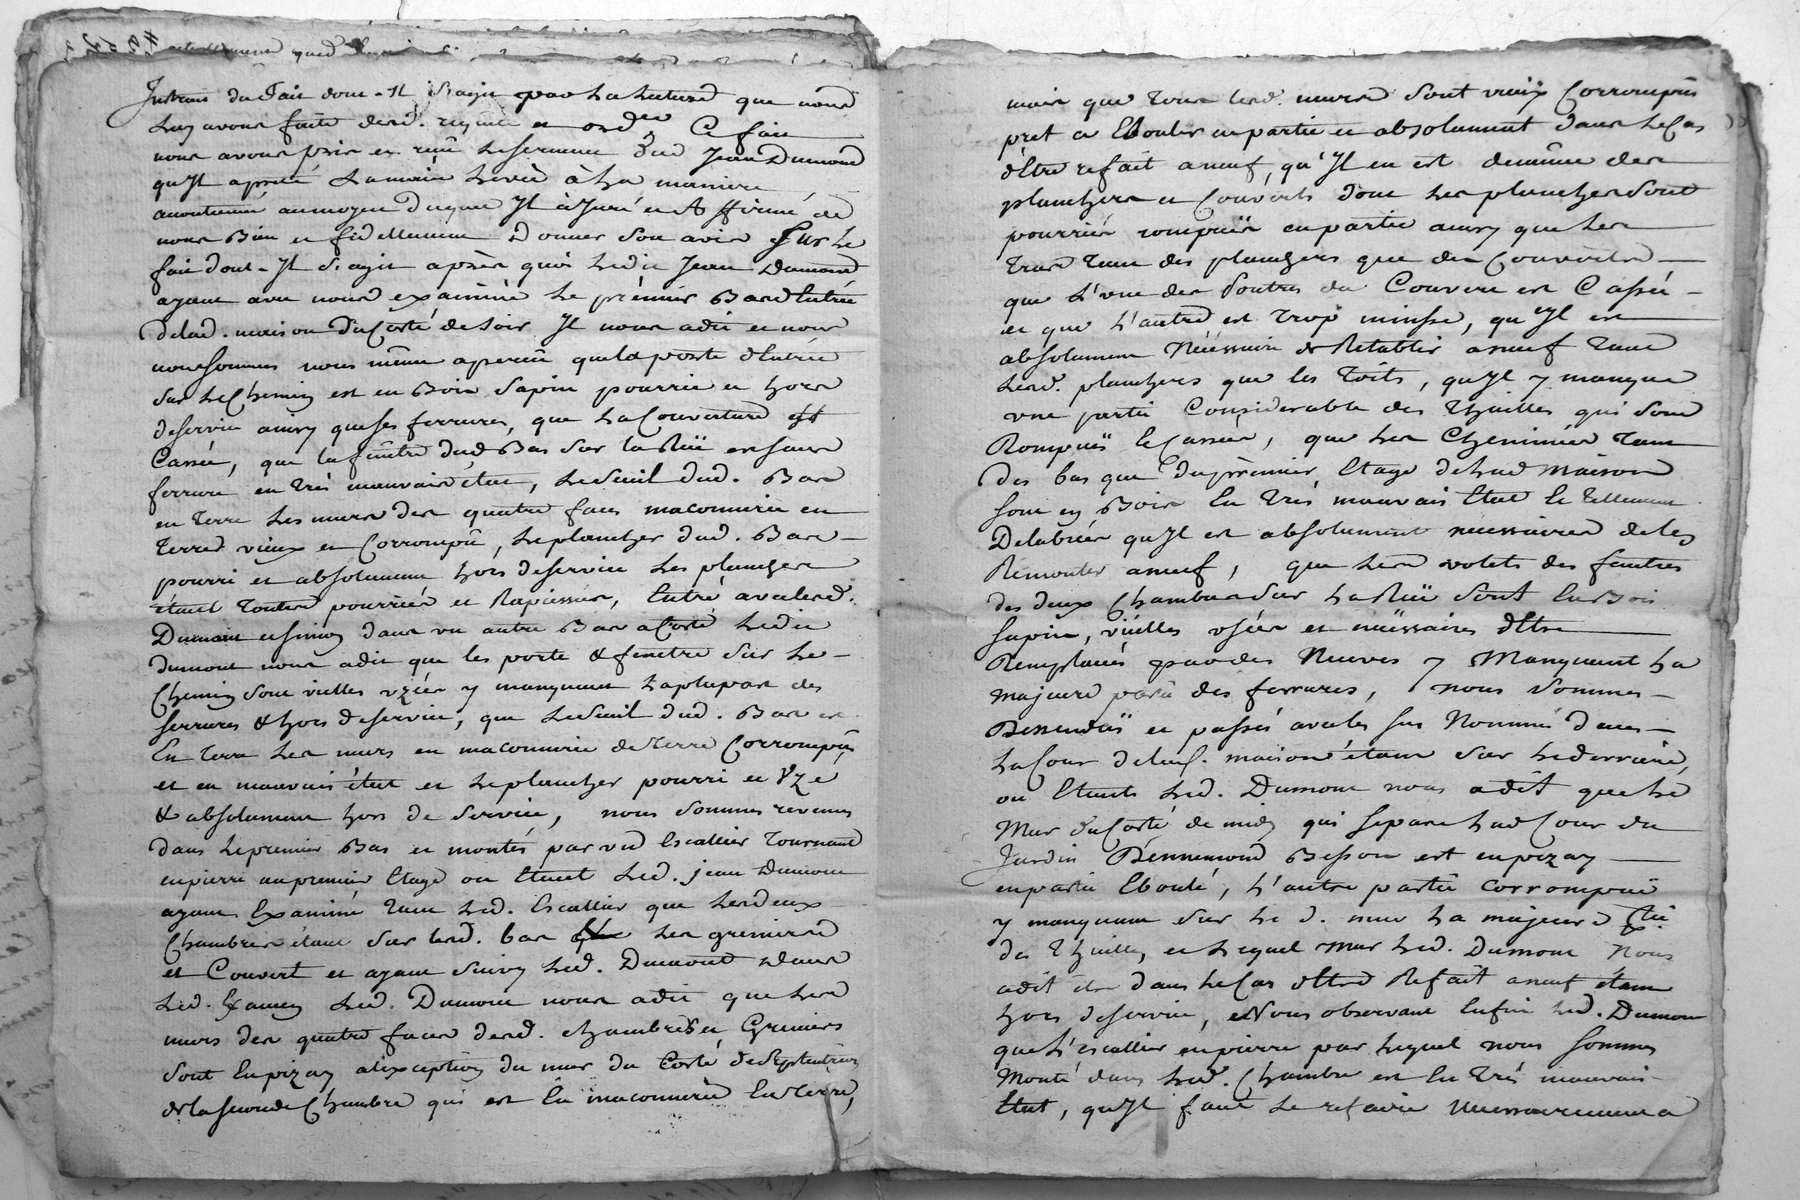 Instruis du fait dont Il s'agit par la lecture que nous
luy avons faite desd. requete et ordce Ce fait
nous avons pris et reçu le serment dud Jean Dumond
qu'Il a preté la main levée à la maniere
accoutumé au moyen duquel Il à Juré et Affirmé de
nous Bien et fidellement Donner son avis sur le
fait dont Il s'agit après quoi ledit Jean Dumond
ayant avec nous éxaminé le prémier Bas d'entrée
delad. maison du Costé de soir Il nous a dit et nous
nous sommes nous même aperçu que la porte d'Entrée
sur le Chemin est en Bois sapin pourrie et hors
de service ainsy que ses ferrures, que la Couverture est
Cassée, que la fenêtre dud Bas sur la Rüe est sans
ferrure en très mauvais état, le seuil dud. Bas
en terre les murs des quatre faces maconnerie en
terre vieux et Corrompu, le plancher dud. Bas
pourri et absolument hors de service les planches
étant toutes pourriés et Rapiessés, Entré avec led.
Dumont ensuitte dans un autre Bas a Costé ledit
dumont nous a dit que les porte & fenetre sur le
Chemin sont vielles uzées y manquant la plupart des
serrures & hors de service, que le seuil dud. Bas est
En terre les murs en maconnerie de terre Corrompüs
et en mauvais état et le plancher pourri et Uze
& absolument hors de service, nous sommes revenus
dans le premier Bas et montés par un Escallier tournant
en pierre au premier Etage ou Etant led. jean Dumont
ayant Examiné tant led. Escallier que les deux
Chambres étant sur lesd. bas les greniers
et Couvert et ayant suivy led. Dumont dans
led. Examen led. Dumont nous a dit que les
murs des quatre faces desd. chambres et Greniers
sont En pizay a l'exception du mur du Costé de Septentrion
de la seconde Chambre qui est En maconnerie En terre,
mais que tous lesd. murs sont vieux Corrompus
pret a Ebouler en partie et absolument dans le Cas
d'Etre refait a neuf, qu'Il en est de même des
planchers et Couverts dont les planches sont
pourriés rompües en partie ainsy que les
tras tant des planchers que des Couverts
que l'une des soutres du Couvert est Cassée
et que l'autre est trop minsse, qu'Il est
absolument Nécessaire de Retablir a neuf tant
lesd. planchers que les toits, qu'Il y manque
une partie Considerable des thuilles qui sont
Rompuës et Cassées, que les Cheminées tant
des bas que du prémier Etage de lad maison
sont en Bois En très mauvais Etat Et tellement
Delabrées qu'Il est absolument necessaire de les
Remonter a neuf, que les volets des fenetres
des deux Chambres sur la Rüe sont En Bois
sapin, vielles usées et néçessaires d'Etre
Remplacés par des Neuves y Manquant la
majeure partie des ferrures, nous sommes
Dessendus et passés avec les sus Nommés dans
la Cour de lad. maison étant sur le derriere,
ou Etant led. Dumont nous a dit que le
Mur du Costé de midy qui separe lad Cour du
Jardin Bennemond Besson est en pizay
en partie Eboulé, l'autre partie corrompuë
y manquant sur led. mur la majeure ptie
des thuilles, et lequel mur led. Dumont Nous
a dit être dans le Cas d'Etre Refait a neuf étant
hors de service, Nous observant Enfin led. Dumont
que l'Escallier en pierre par lequel nous sommes
Monté dans lad. Chambre est En très mauvais
Etat, qu'Il faut le refaire Necessairement